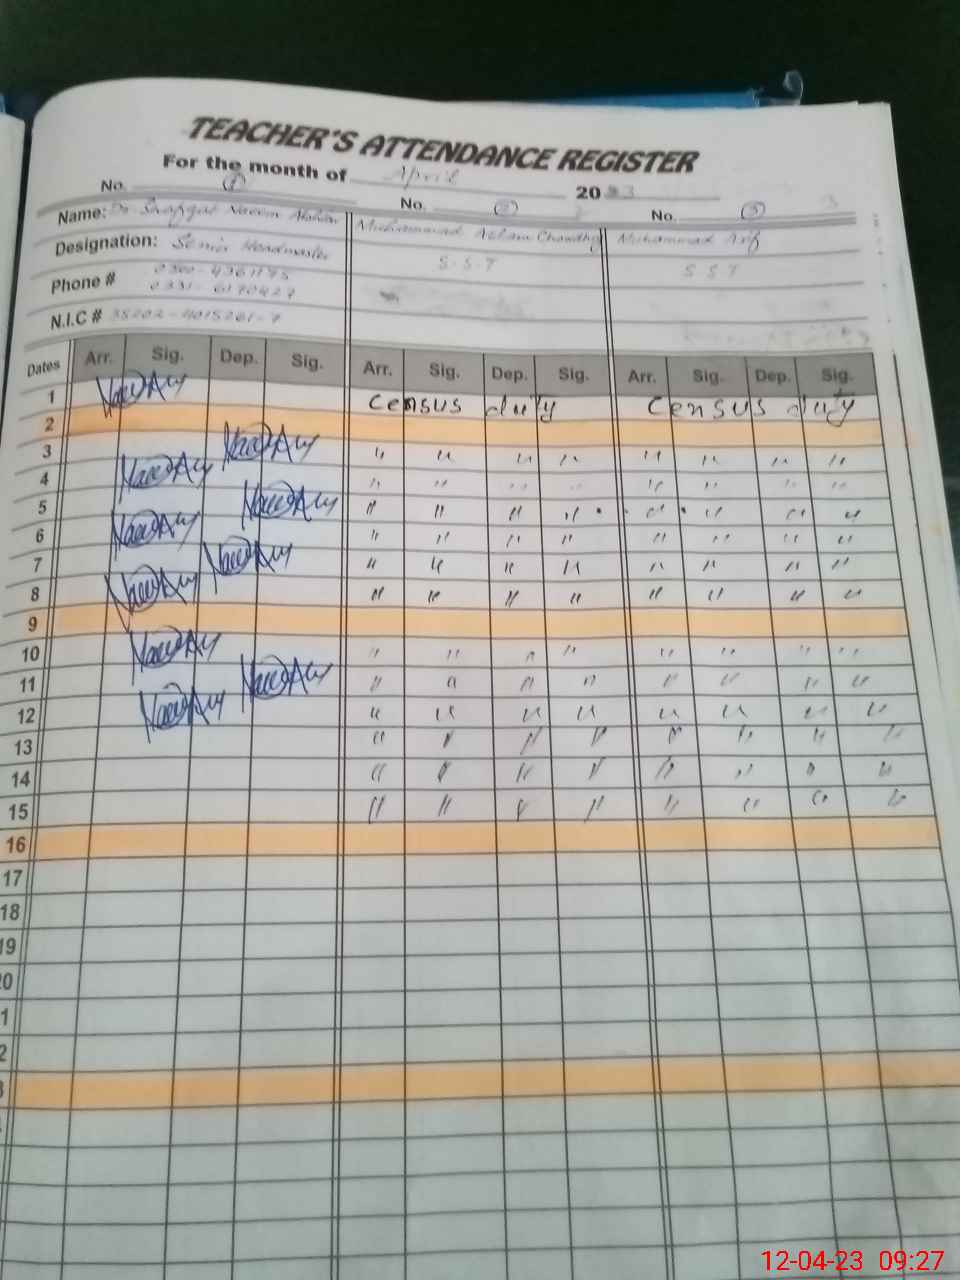 TEACHER'S ATTENDANCE REGISTER
For the month of April 2023
No. 1 No. 2 No. 3 3
Name: Dr. Shafqat Naeem Muhammad Aslam Chowdhry Muhammad Arif
Designation: Senior Headmaster S.S.T S.S.T
Phone #
N.I.C #
Dates Arr. Sig. Dep. Sig. Arr. Sig. Dep. Sig. Arr. Sig. Dep. Sig.
1 Census duty Census duty
2
3 " " " " " " " "
4 " " " " " " " "
5 " " " " " " " "
6 " " " " " " " "
7 " " " " " " " "
8 " " " " " " " "
9
10 " " " " " " " "
11 " " " " " " " "
12 " " " " " " " "
13 " " " " " " " "
14 " " " " " " " "
15 " " " " " " " "
16
17
18
19
20
1
2
3
12-04-23 09:27